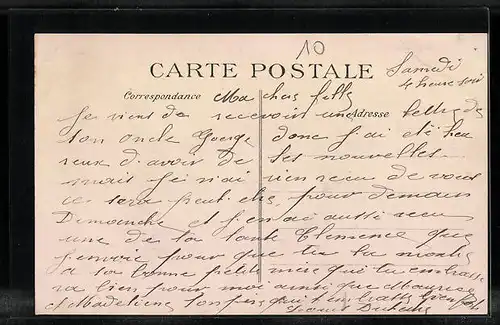 10
CARTE POSTALE
Samedi
4 heure soir
Correspondance
Ma chere fille
Adresse
Je viens de recevoir une lettre de
ton oncle George donc j'ai été heu
reux d'avoir de ses nouvelles
mais je n'ai rien recu de vous
ce sera peut etre pour demain
Dimanche et j'en ai aussi recu
une de ta tante Clemence que
j'envoie pour que tu la montre
a ta bonne petite mère qui tu embrasse
ra bien pour moi ainsi que Maurice
et Madeleine ton pere qui t'embrasse bien fort